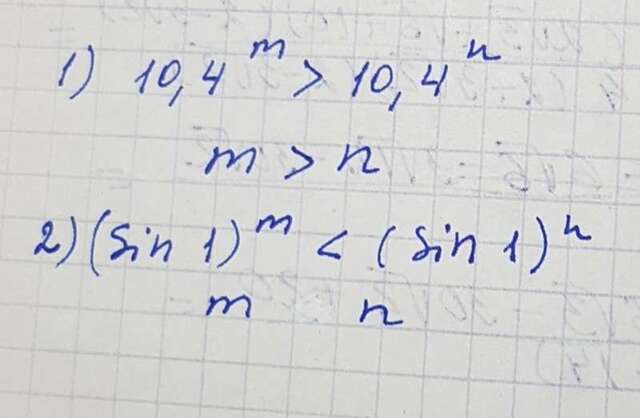 1) 10,4^m > 10,4^n
m > n
2) (sin 1)^m < (sin 1)^n
m n